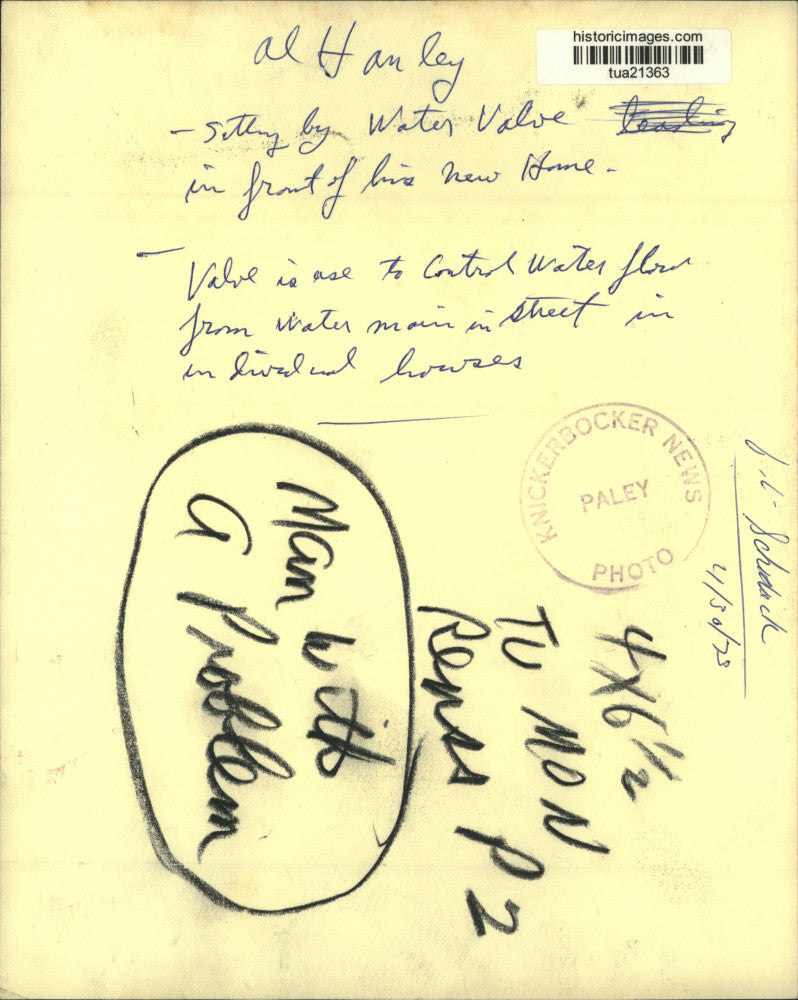 historicimages.com
tua21363
Al Hanley
- Sitting by Water Valve
in front of his new Home.
- Valve is use to Control Water flow
from water main in street in
individual houses
KNICKERBOCKER NEWS
PALEY
PHOTO
Schodack
4/30/73
4X6 1/2
TU MON
Renss P 2
Man with
a Problem